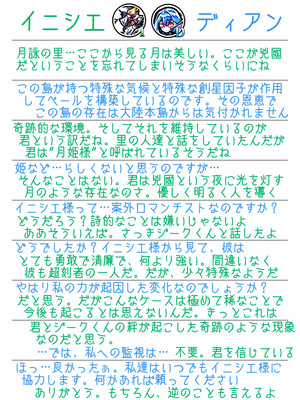 イニシエ ディアン
月詠の里…ここから見る月は美しい。ここが兇國
だということを忘れてしまいそうなくらいにね
この島が持つ特殊な気候と特殊な創星因子が作用
してベールを構築しているのです。その恩恵で
この島の存在は大陸本島からは気付かれません
奇跡的な環境。そしてそれを維持しているのが
君という訳だね。里の人達と話をしていたんだが
君は"月姫様"と呼ばれているそうだね
姫など…らしくないと思うのですが…
そんなことはない。君は兇國という夜に光を灯す
月のような存在なのさ。優しく明るく人を導く
イニシエ様って…案外ロマンチストなのですか？
どうだろう？詩的なことは嫌いじゃないよ
ああそういえば。さっきジークくんと話したよ
どうでしたか？イニシエ様から見て、彼は
とても勇敢で清廉で、何より強い。間違いなく
彼も超剋者の一人だ。だが、少々特殊なようだ
やはり私の力が起因した変化なのでしょうか？
だと思う。だがこんなケースは極めて稀なことで
今後も起こるとは思えないんだ。きっとこれは
君とジークくんの絆が起こした奇跡のような現象
なのだと思う。
…では、私への監視は… 不要。君を信じている
ほっ…良かったぁ。私達はいつでもイニシエ様に
協力します。何かあれば頼ってください
ありがとう。もちろん、逆のことも言えるよ